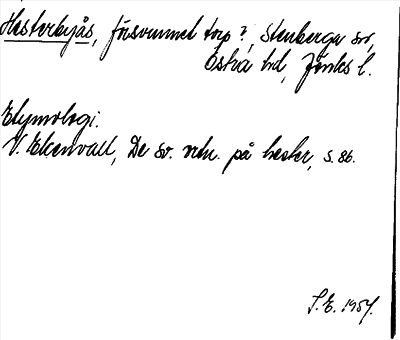 Hesterbyås, försvunnet torp?, Stenberga sn,
Östra hd, Jönks l.
Etymologi:
V. Ekenvall, De sv. ortn. på hester, s. 86.
S.E. 1957.